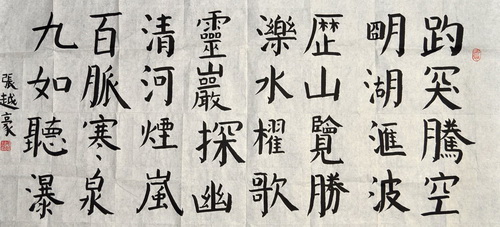 趵突騰空
明湖滙波
歷山覽勝
濼水櫂歌
靈巖探幽
清河煙嵐
百脈寒泉
九如聽瀑
張越豪